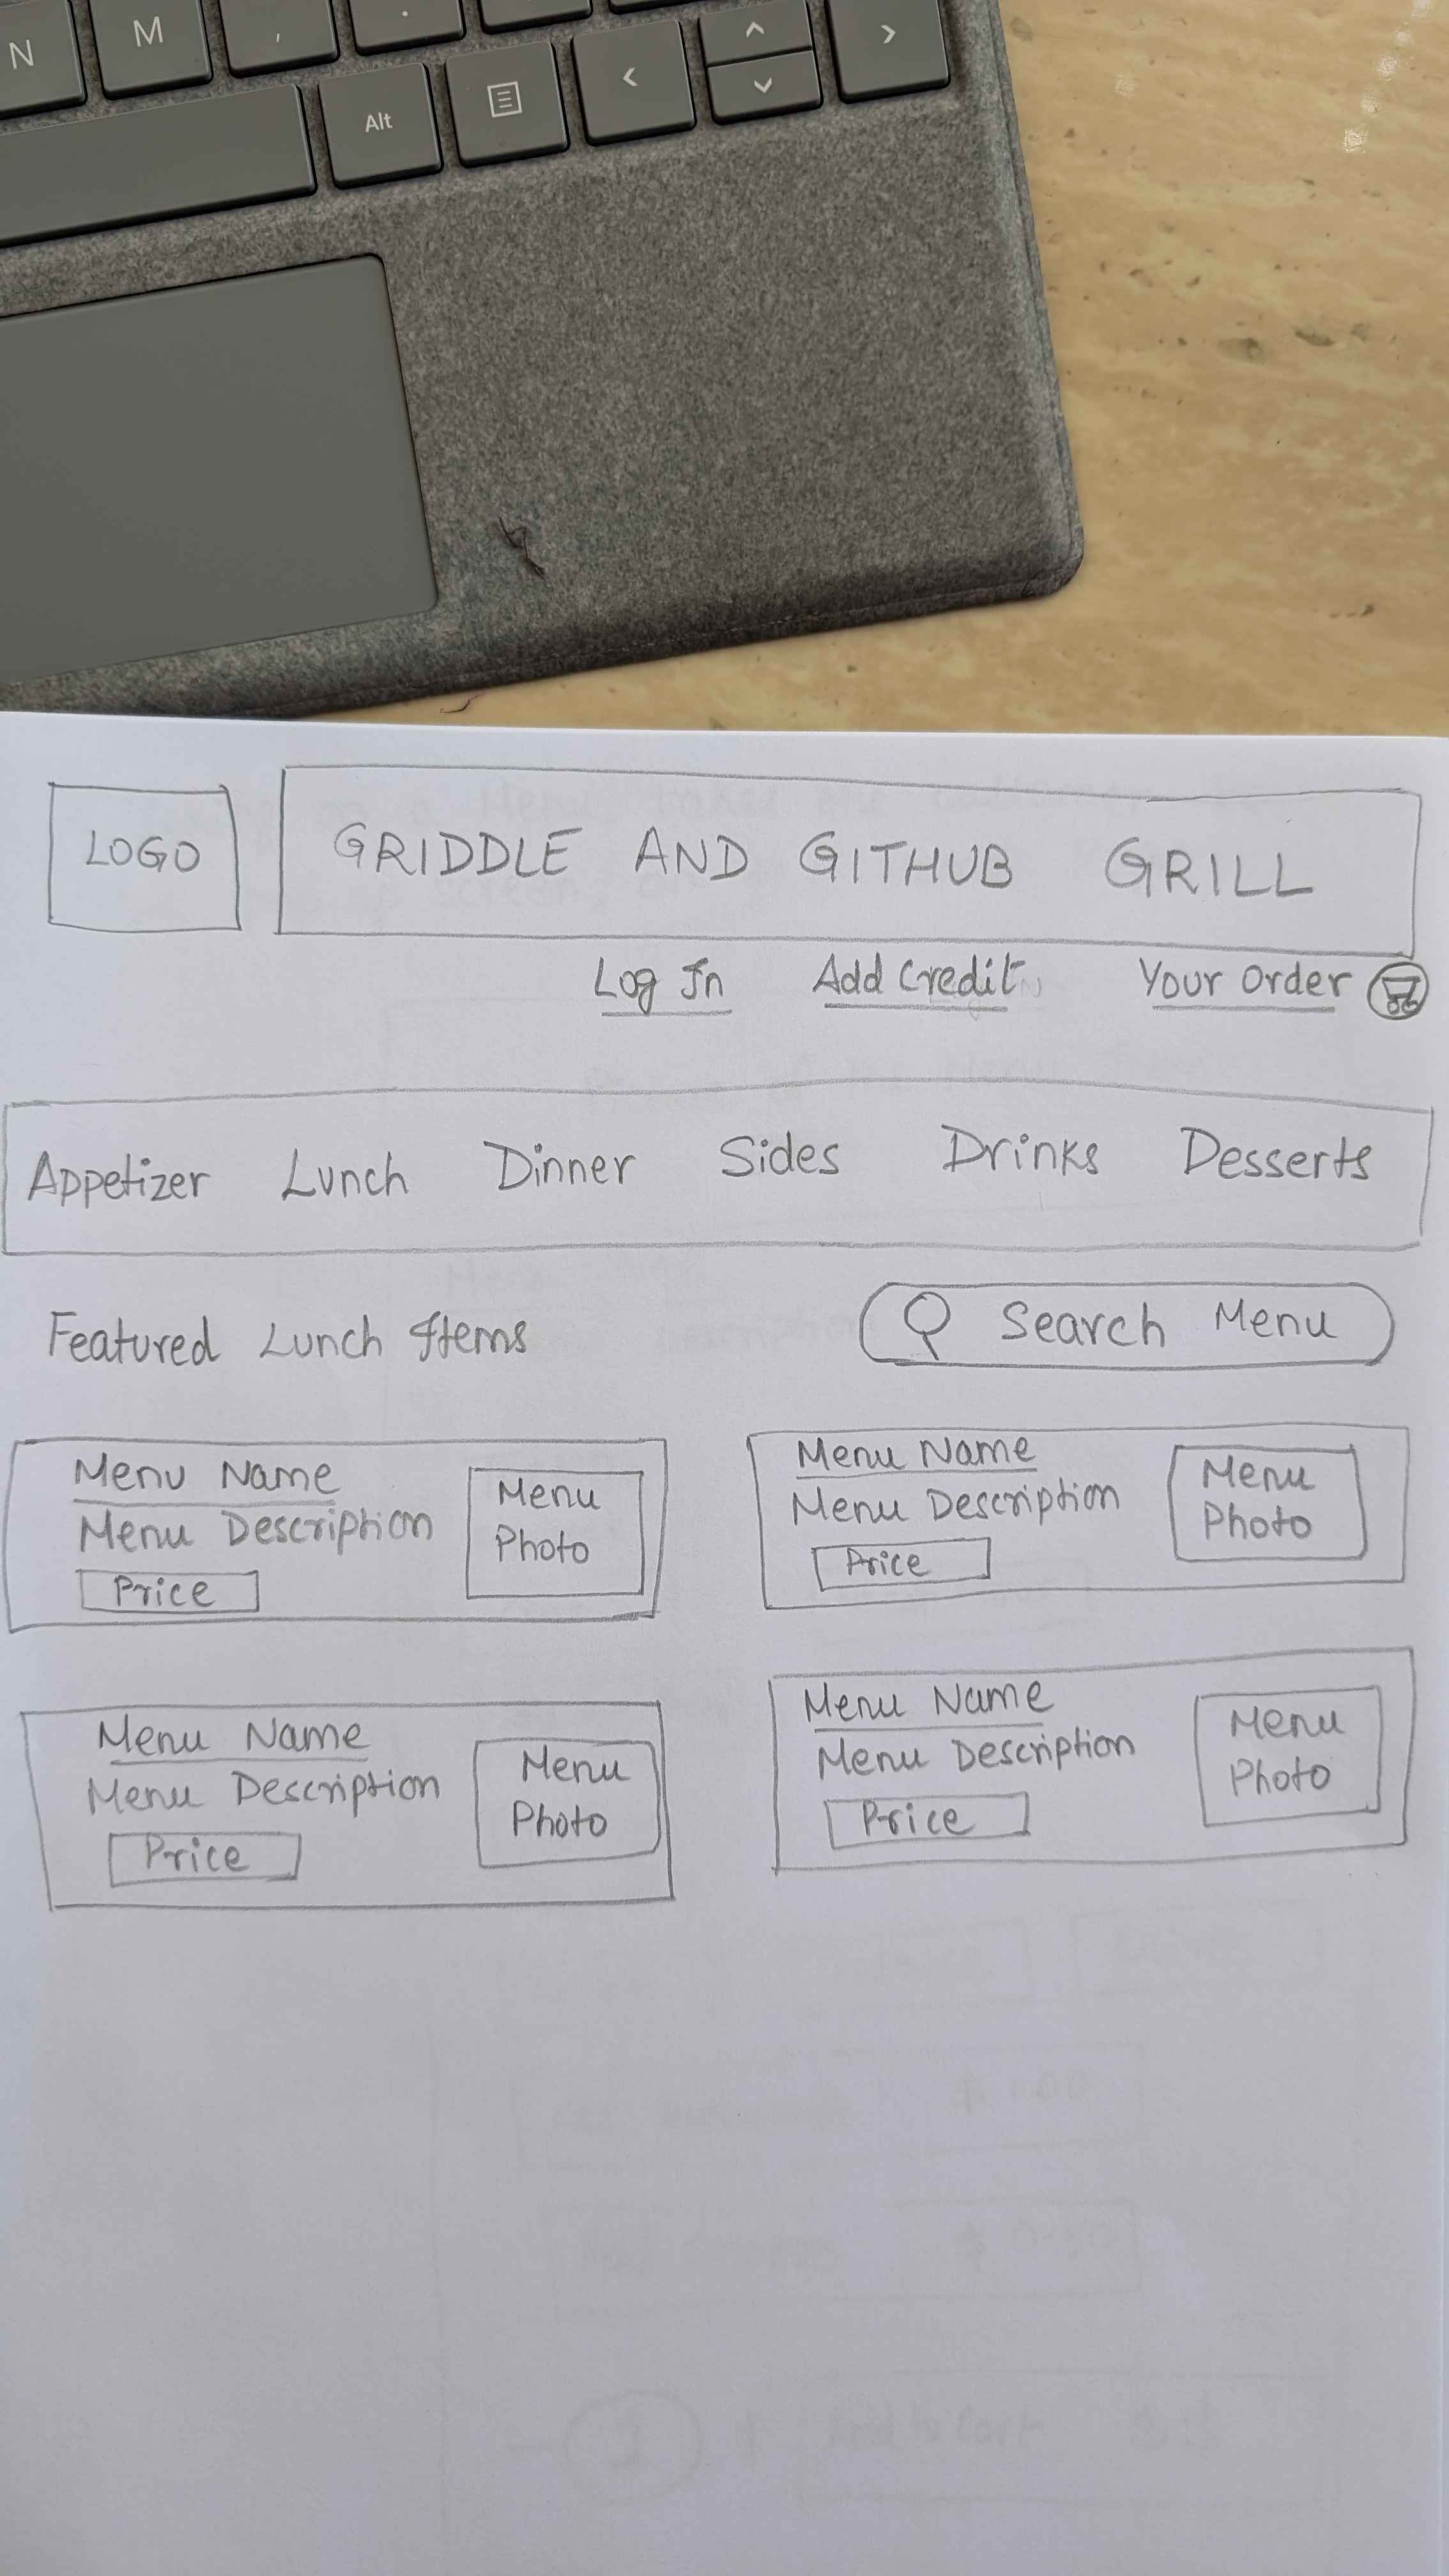 N M , .
Alt
LOGO
GRIDDLE AND GITHUB GRILL
Log In Add Credit Your Order
Appetizer Lunch Dinner Sides Drinks Desserts
Featured Lunch Items
Search Menu
Menu Name
Menu Description
Price
Menu
Photo
Menu Name
Menu Description
Price
Menu
Photo
Menu Name
Menu Description
Price
Menu
Photo
Menu Name
Menu Description
Price
Menu
Photo